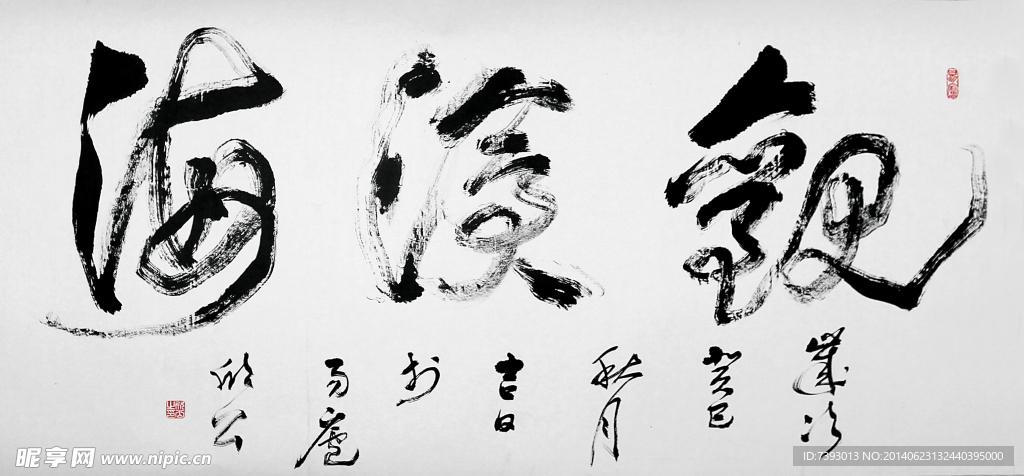 觀滄海
歲次
癸巳
秋月
吉日
於
易廬
欣公
昵享网 www.nipic.cn
ID:7393013 NO:20140623132440395000